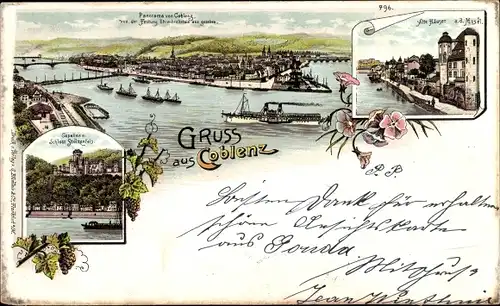 Panorama von Coblenz,
von der Festung Ehrenbreitstein aus gesehen.
796.
Alte Häuser a. d. Mosel.
Capellen u.
Schloss Stolzenfels
GRUSS
aus Coblenz
P.P.
Besten Dank für erhaltene
schöne Ansichtskarte
aus Gouda
Mitgruss
Jean